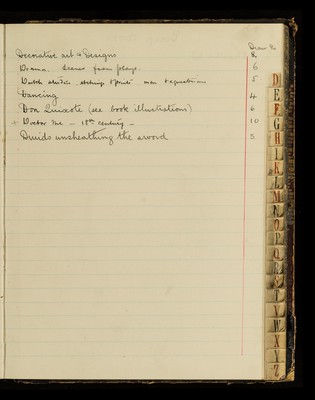 Draw R
Decorative art & Designs 8
Drama. Scenes from plays. 6
Dutch studies etchings & prints men & 5
Dancing 4
Don Quixote (see book illustrations) 6
Doctor - 18th century - 10
Druids unsheathing the sword 5
D
E
F
G
H
I
K
L
M
N
O
P
Q
R
S
T
V
W
X
Y
Z